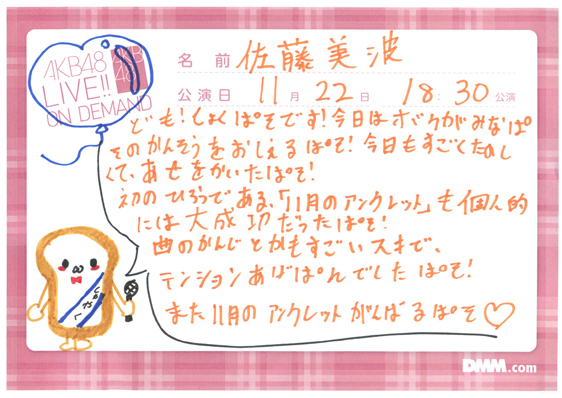 AKB48
LIVE!!
ON DEMAND
AKB
48
名前 佐藤美波
公演日 11月22日 18:30公演
ども!しょくぱそです!今日はボクがみなぱ
そのかんそうをおしえるぱそ!今日もすごくたのし
くて、あせをかいたぱそ!
初のひろうである、「11月のアンクレット」も個人的
には大成功だったぱそ!
曲のかんじとかもすごいスキで、
テンションあばばぱんでしたぱそ!
また11月のアンクレットがんばるぱそ♡
DMM.com